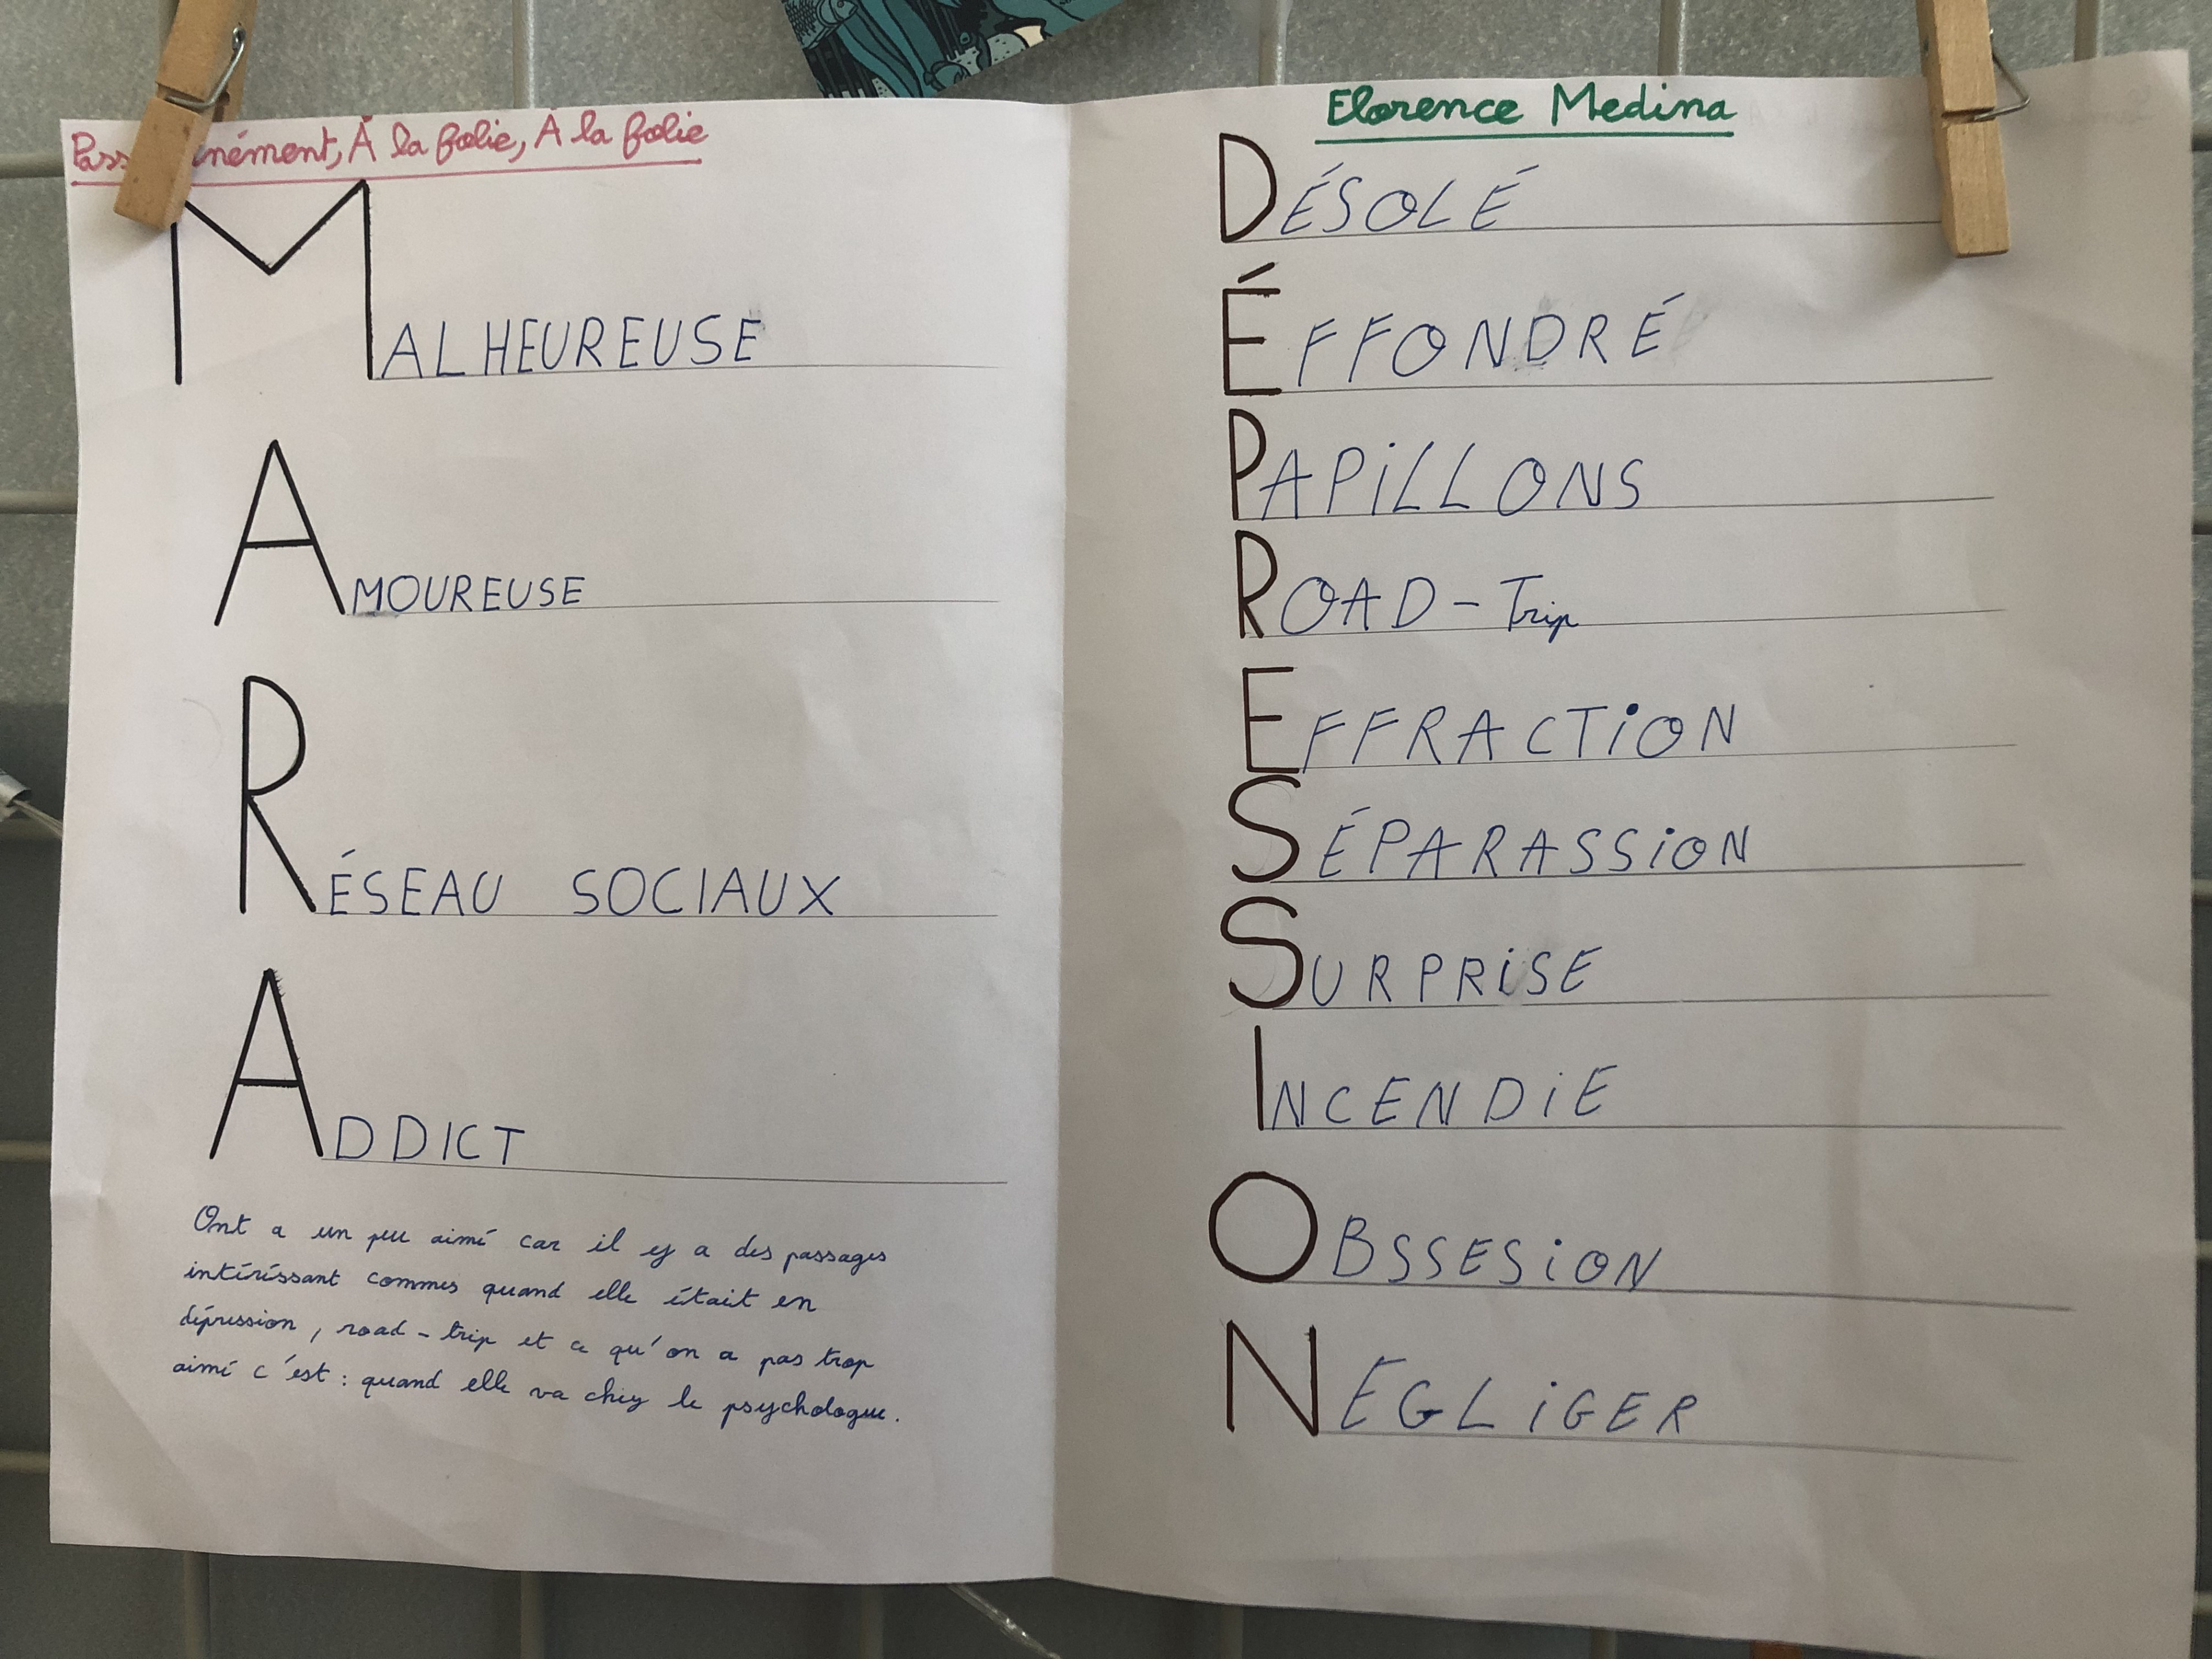 Pass nément, À la folie, A la folie
MALHEUREUSE
AMOUREUSE
RÉSEAU SOCIAUX
ADDICT
Ont a un peu aimé car il y a des passages
intéréssant commes quand elle était en
dépression, road-trip et ce qu'on a pas trop
aimé c'est : quand elle va chez le psychologue.
Florence Medina
DÉSOLÉ
ÉFFONDRÉ
PAPILLONS
ROAD-Trip
EFFRACTION
SÉPARASSION
SURPRISE
INCENDIE
OBSSESION
NEGLIGER